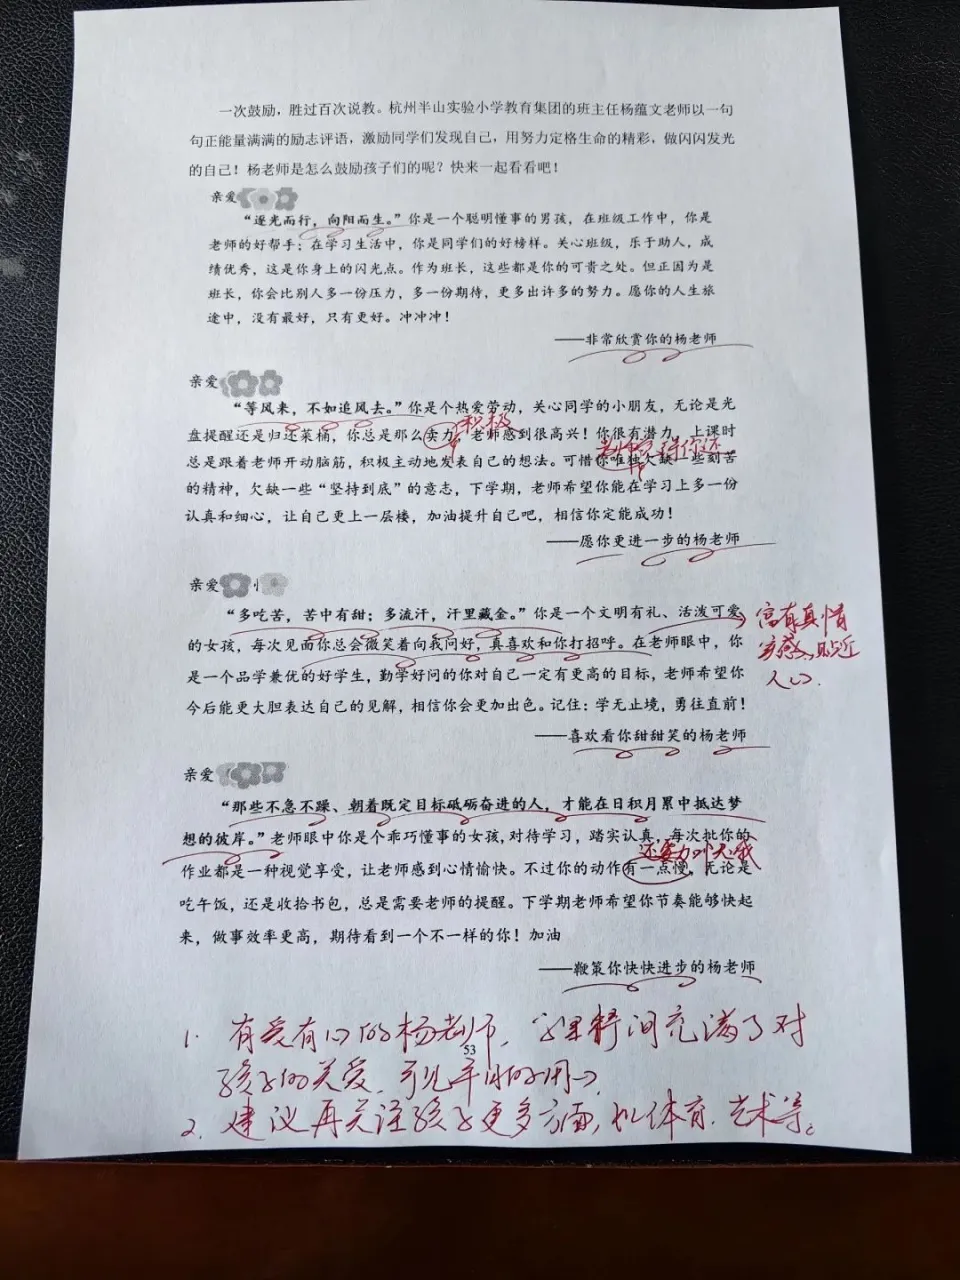 一次鼓励，胜过百次说教。杭州半山实验小学教育集团的班主任杨蕴文老师以一句
句正能量满满的励志评语，激励同学们发现自己，用努力定格生命的精彩，做闪闪发光
的自己！杨老师是怎么鼓励孩子们的呢？快来一起看看吧！
亲爱
“逐光而行，向阳而生。”你是一个聪明懂事的男孩，在班级工作中，你是
老师的好帮手；在学习生活中，你是同学们的好榜样。关心班级，乐于助人，成
绩优秀，这是你身上的闪光点。作为班长，这些都是你的可贵之处。但正因为是
班长，你会比别人多一份压力，多一份期待，更多出许多的努力。愿你的人生旅
途中，没有最好，只有更好。冲冲冲！
——非常欣赏你的杨老师
亲爱
“等风来，不如追风去。”你是个热爱劳动，关心同学的小朋友，无论是光
积极
盘提醒还是归还菜桶，你总是那么卖力，老师感到很高兴！你很有潜力，上课时
总是跟着老师开动脑筋，积极主动地发表自己的想法。可惜你唯独欠缺一些刻苦
的精神，欠缺一些“坚持到底”的意志，下学期，老师希望你能在学习上多一份
认真和细心，让自己更上一层楼，加油提升自己吧，相信你定能成功！
——愿你更进一步的杨老师
亲爱
“多吃苦，苦中有甜；多流汗，汗里藏金。”你是一个文明有礼、活泼可爱
的女孩，每次见面你总会微笑着向我问好，真喜欢和你打招呼。在老师眼中，你
是一个品学兼优的好学生，勤学好问的你对自己一定有更高的目标，老师希望你
今后能更大胆表达自己的见解，相信你会更加出色。记住：学无止境，勇往直前！
——喜欢看你甜甜笑的杨老师
富有真情
实感、贴近
人心.
亲爱
“那些不急不躁、朝着既定目标砥砺奋进的人，才能在日积月累中抵达梦
想的彼岸。”老师眼中你是个乖巧懂事的女孩，对待学习，踏实认真，每次批你的
作业都是一种视觉享受，让老师感到心情愉快。不过你的动作有一点慢，无论是
吃午饭，还是收拾书包，总是需要老师的提醒。下学期老师希望你节奏能够快起
来，做事效率更高，期待看到一个不一样的你！加油
——鞭策你快快进步的杨老师
1. 有爱有心的杨老师，字里行间充满了对
53
孩子的关爱，可见平时的用心
2. 建议再关注孩子更多方面，如体育、艺术等。